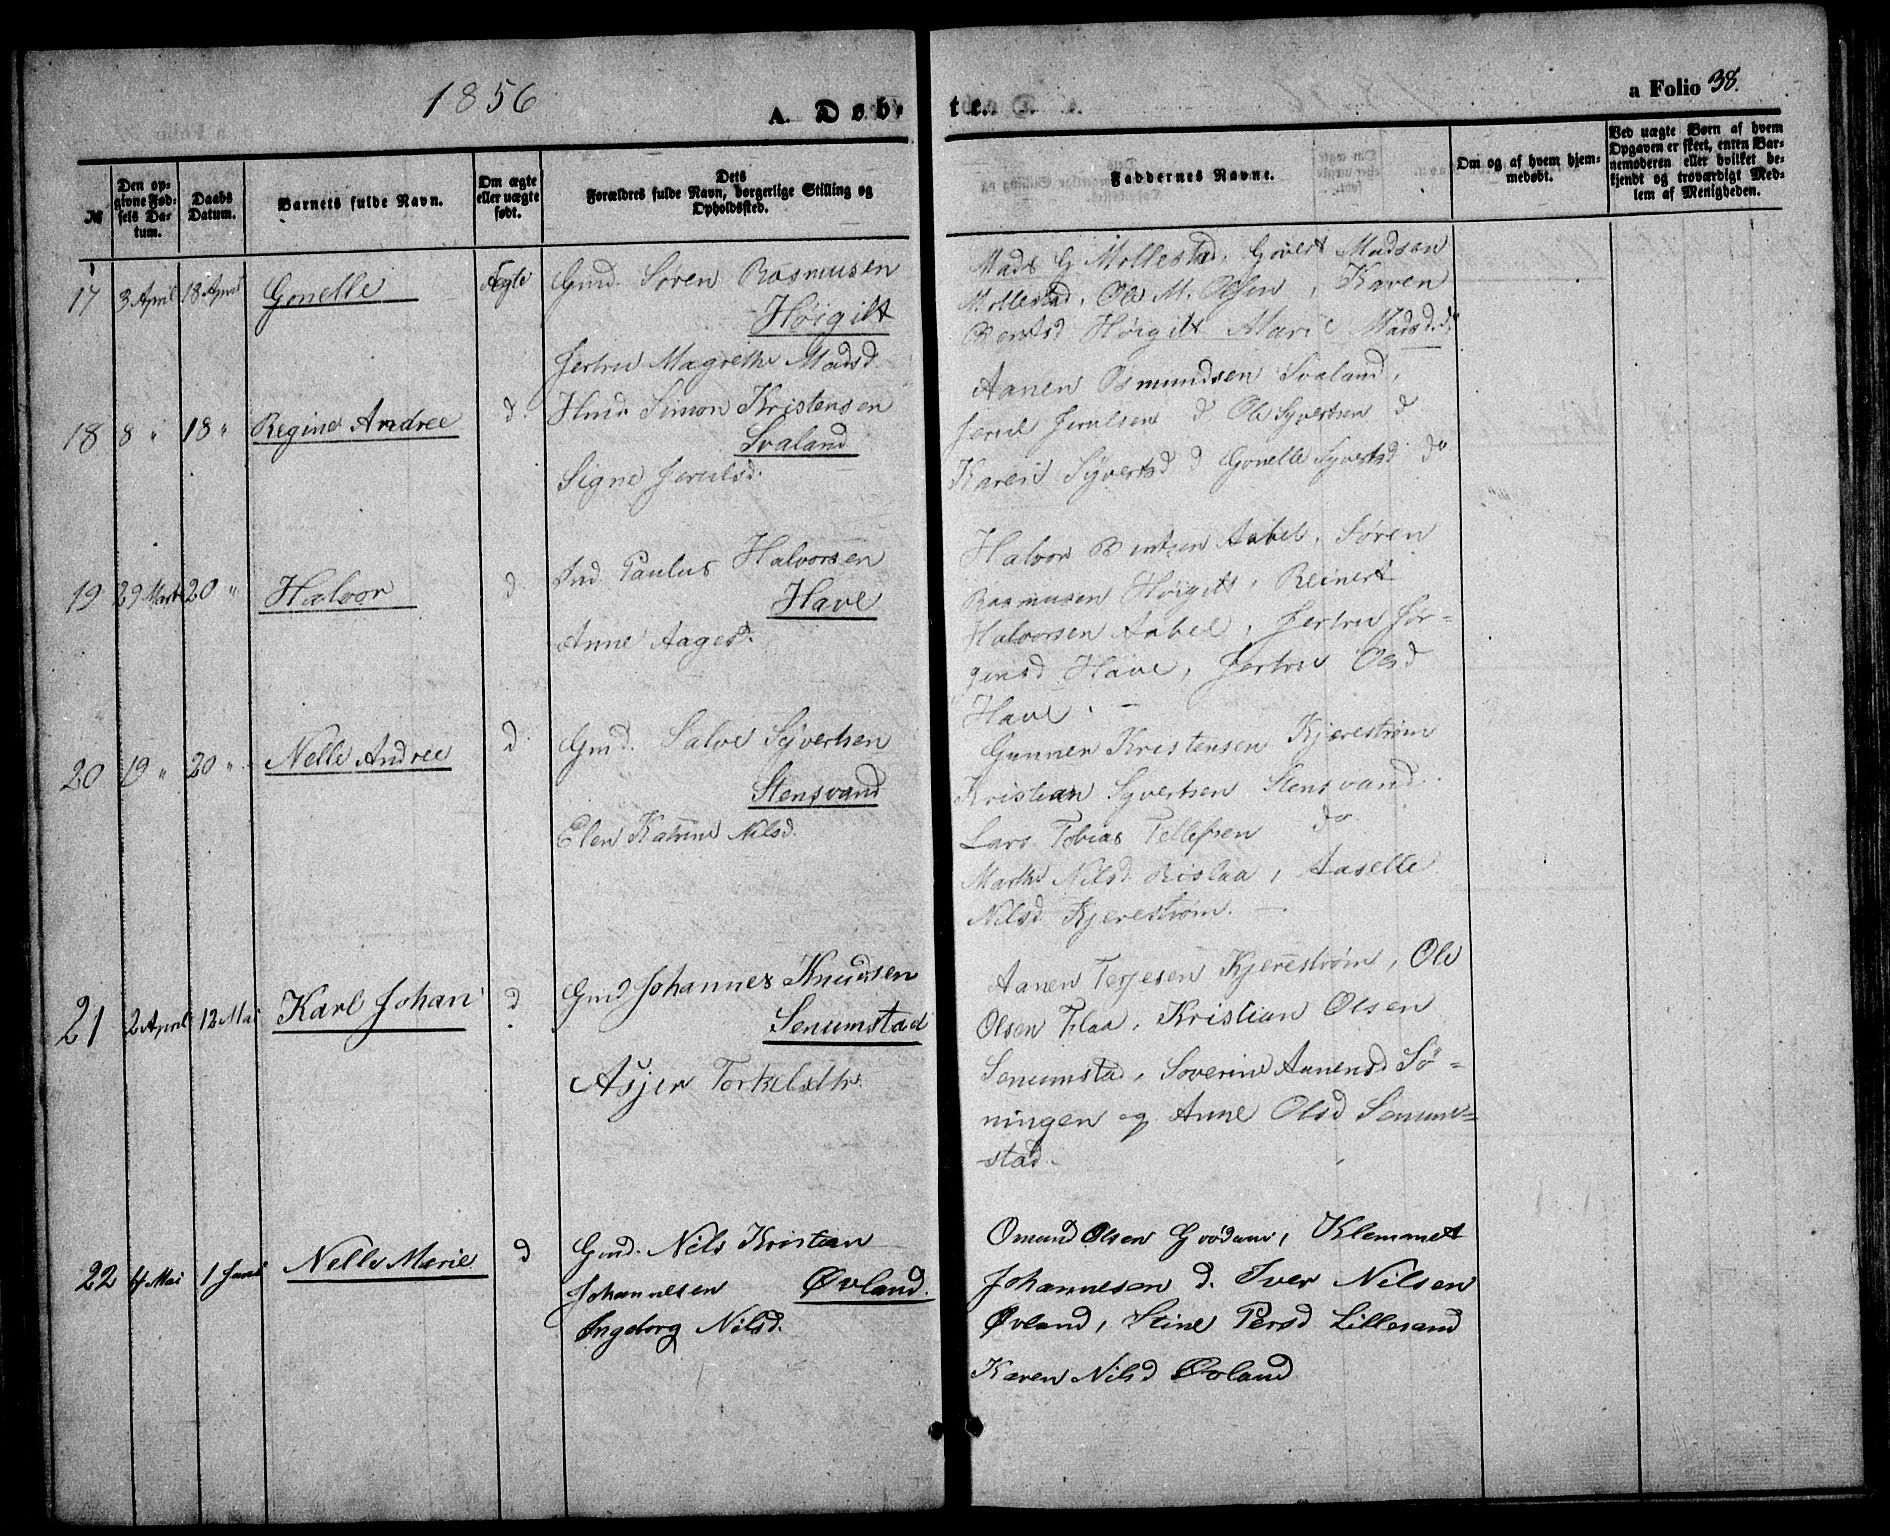 1856
A. Døbte.
a Folio 38.
№
Den opgivne Fødsels Datum.
Daabs Datum.
Barnets fulde Navn.
Om ægte eller uægte født.
Dets Forældres fulde Navn, borgerlige Stilling og Opholdssted.
Faddernes Navne.
Om og af hvem hjemmedøbt.
Ved uægte Børn af hvem Opgaven er skeet, enten Barnemoderen eller hvilket bekjendt og troværdigt Medlem af Menigheden.
17 3 April 18 April Gonelle Ægte Gmd. Søren Rasmusen
Høigilt
Jertru Magrethe Madsd.
Mads G Mollestad, Govert Madsen
Mollestad, Ole M. Olsen, Karen
Bentsd Høigilt Marie Madsd. do
18 8 " 18 " Regine Andree d. Hmd. Simon Kristensen
Svaland
Signe Jerulsd.
Aanen Osmundsen Svaland,
Jerul Jerulsen d Ole Syvertsen d
Karen Syvertsd d Gonelle Syvertsd do
19 29 Marts 20 " Halvor d Ind. Paulus Halvorsen
Have
Anne Aagesd.
Halvor Bentsen Aabel, Søren
Rasmusen Høigilt, Reinert
Halvorsen Aabel, Jertru Jør-
gensd Have, Jertru Olsd
Have. —
20 19 " 20 " Nelle Andree d. Gmd. Salve Syvertsen
Stensvand
Elen Katrine Nilsd.
Gunner Kristensen Kjerestrøm
Kristian Syvertsen Stensvand
Lars Tobias Tellefsen do
Marthe Nilsd. Rislaa, Aaselle
Nilsd. Kjerestrøm. —
21 2 April 12 Mai Karl Johan d. Gmd Johannes Knudsen
Senumstad
Asjer Torkelsdtr.
Aanen Terjesen Kjerestrøm, Ole
Olsen Flaa, Kristian Olsen
Senumstad, Soverine Aanensd Sø-
ningen og Anne Olsd Senum-
-stad.
22 4 Mai 1 Juni Nelle Marie d Gmd. Nils Kristian
Johannesen Øvland.
Ingeborg Nilsd.
Omund Olsen Grødum, Klemmet
Johannesen d. Iver Nilsen
Øvland, Stine Persd Lillesand
Karen Nilsd Øvland